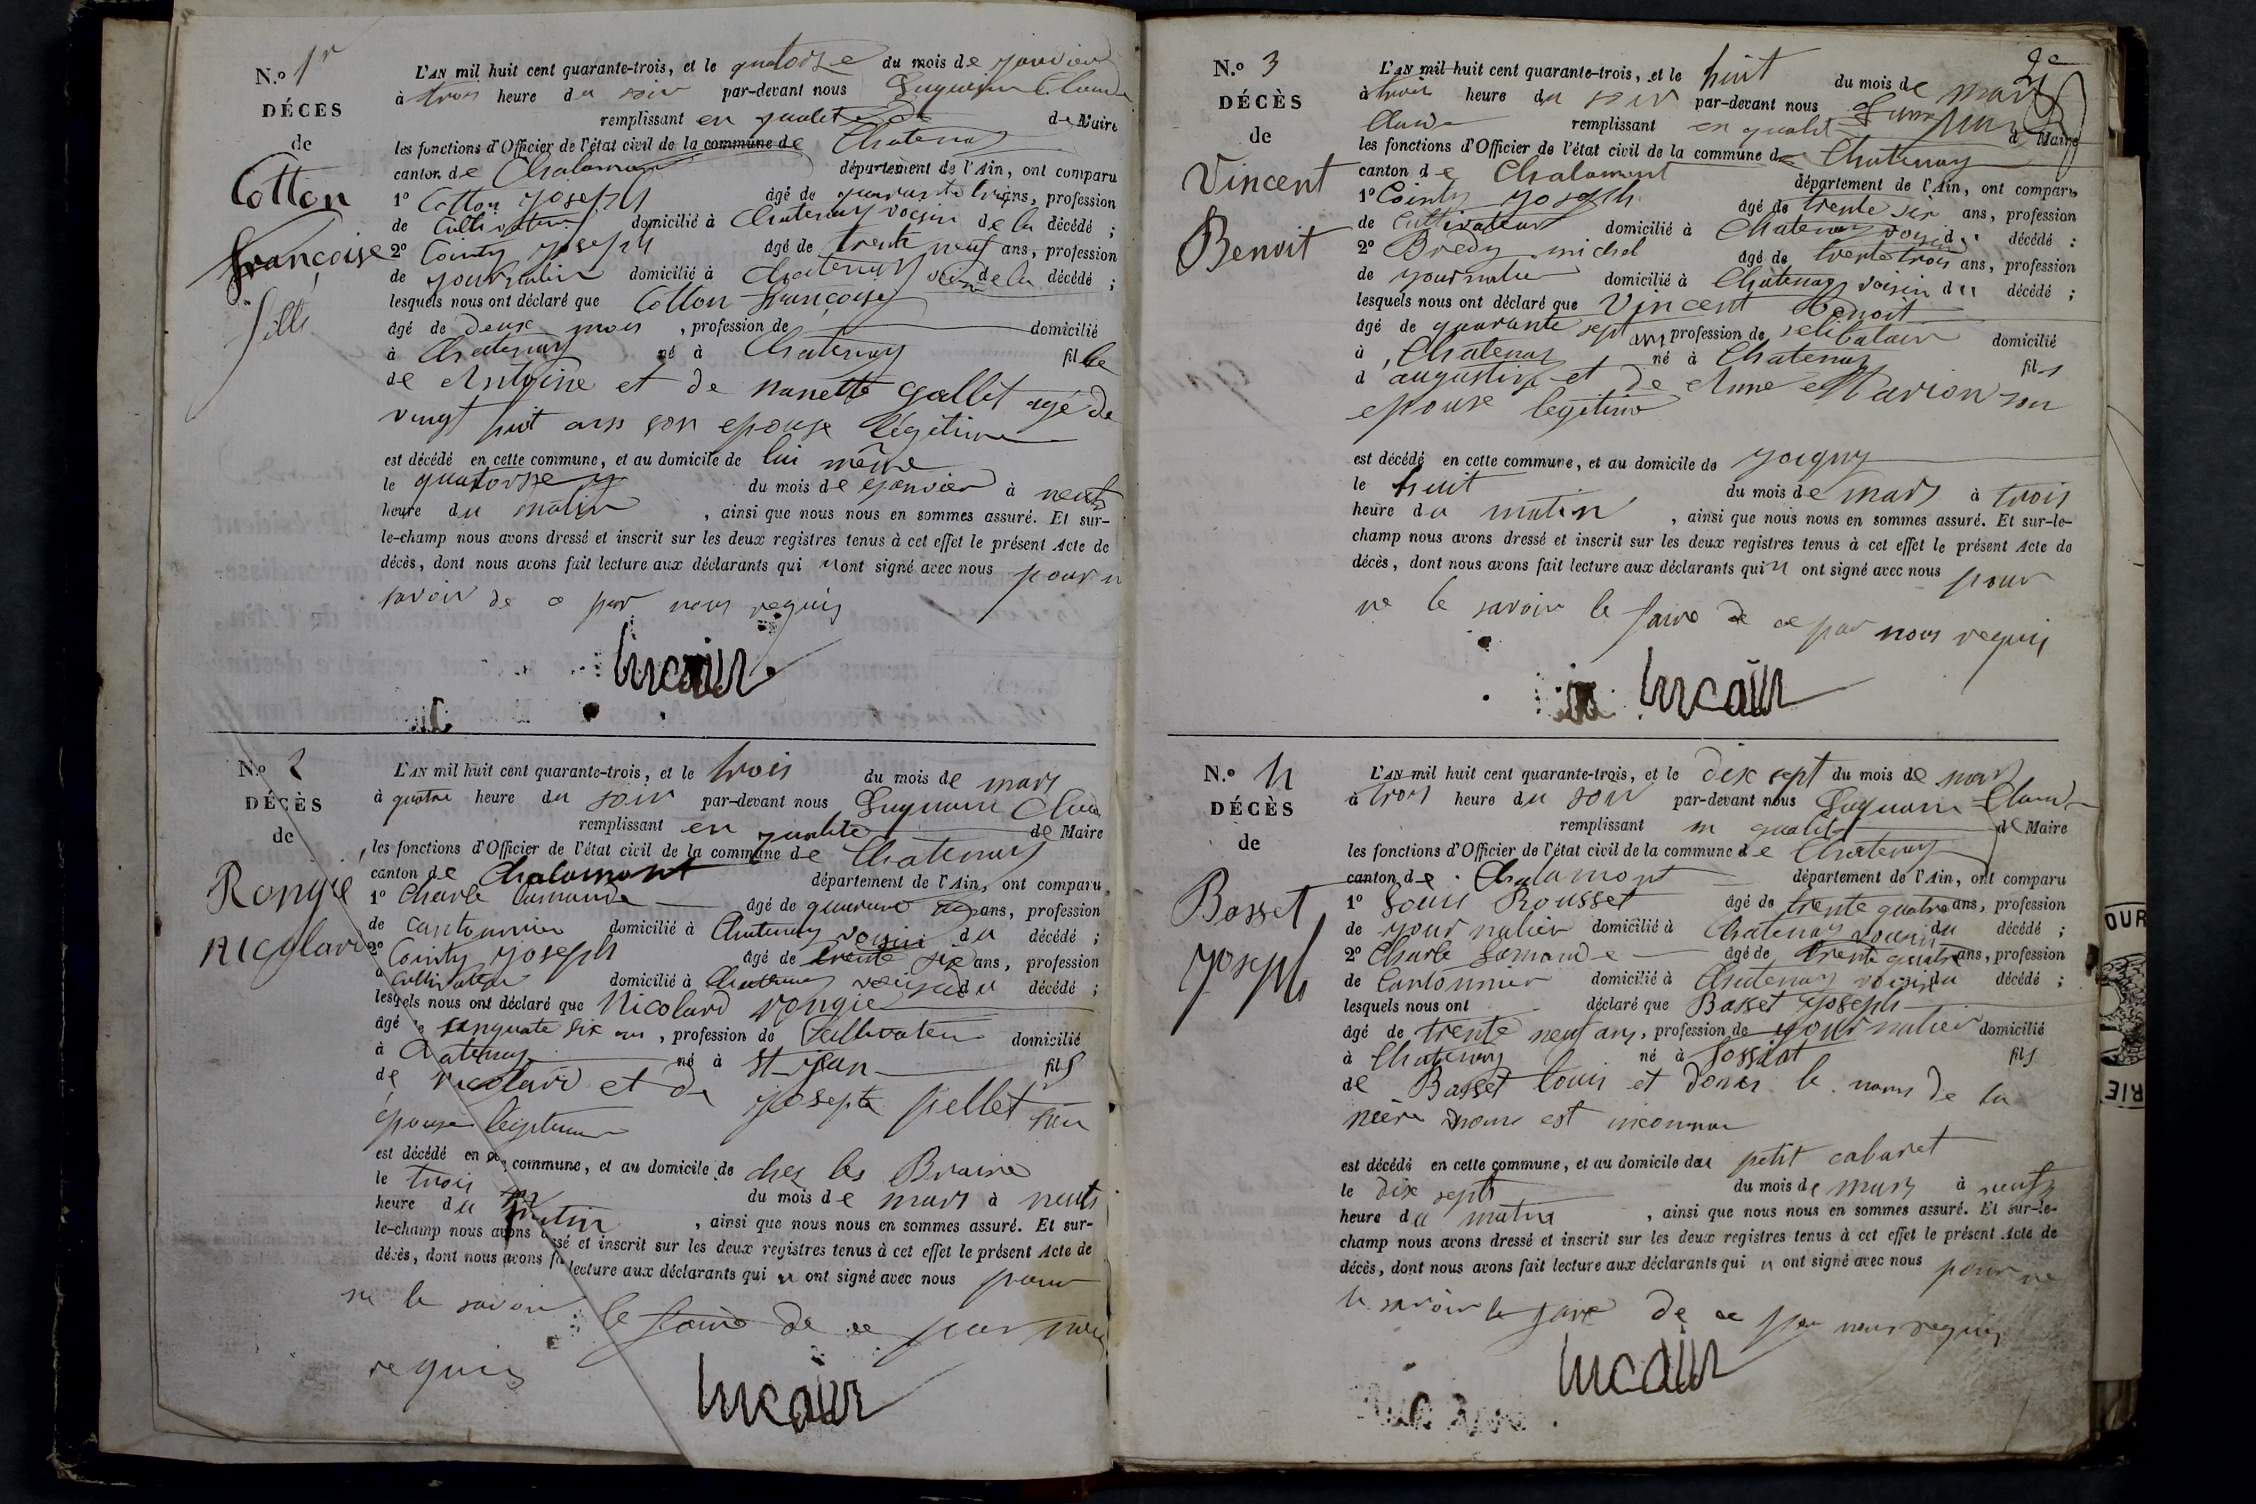 N.º 1r
DÉCÈS
de
Cotton
françoise
fille
L'AN mil huit cent quarante-trois, et le quatorze du mois de janvier
à trois heure du soir par-devant nous Claude
remplissant en qualité de de Maire
les fonctions d'Officier de l'état civil de la commune de Chatenay
canton de Chalamont département de l'Ain, ont comparu
1º Cotton joseph âgé de quarante trois ans, profession
de Cultivateur domicilié à Chatenay voisin de la décédé ;
2º Cointy joseph âgé de trente neuf ans, profession
de journalier domicilié à Chatenay voisin de la décédé ;
lesquels nous ont déclaré que Cotton françoise
âgé de deux mois , profession de domicilié
à Chatenay né à Chatenay fille
de Antoine et de nanette Gallet agé de
vingt huit ans son epouse légitime
est décédé en cette commune, et au domicile de lui même
le quatorze du mois de janvier à neuf
heure du matin , ainsi que nous nous en sommes assuré. Et sur-
le-champ nous avons dressé et inscrit sur les deux registres tenus à cet effet le présent Acte de
décès, dont nous avons fait lecture aux déclarants qui n ont signé avec nous pour n
savoir de ce par nous requis
N.º 2
DÉCÈS
de
Rongie
nicolard
L'AN mil huit cent quarante-trois, et le trois du mois de mars
à quatre heure du soir par-devant nous Claude
remplissant en qualité de Maire
les fonctions d'Officier de l'état civil de la commune de Chatenay
canton de Chalamont département de l'Ain, ont comparu
1º Charle Lamande âgé de quarante ans, profession
de cantonnier domicilié à Chatenay voisin du décédé ;
2º Cointy joseph âgé de trente six ans, profession
d Cultivateur domicilié à Chatenay voisin du décédé ;
lesquels nous ont déclaré que Nicolard rongie
âgé de sinquate six an , profession de Cultivateur domicilié
à Chatenay né à St-jean fils
de nicolard et de josepte pellet son
épouse légitime
est décédé en commune, et au domicile de chez les Braire
le trois du mois de mars à neufs
heure du matin , ainsi que nous nous en sommes assuré. Et sur-
le-champ nous avons ssé et inscrit sur les deux registres tenus à cet effet le présent Acte de
décès, dont nous avons fa lecture aux déclarants qui n ont signé avec nous pour
ne le savoir le faire de ce par nous
requis
N.º 3
DÉCÈS
de
Vincent
Benoit
2e
L'AN mil huit cent quarante-trois, et le huit du mois de mars
à trois heure du soir par-devant nous
Claude remplissant en qualité d Maire
les fonctions d'Officier de l'état civil de la commune de Chatenay
canton de Chalamont département de l'Ain, ont comparu
1º Cointy joseph âgé de trente six ans, profession
de Cultivateur domicilié à Chatenay voisin du décédé ;
2º Bredy michel âgé de trente trois ans, profession
de journalier domicilié à Chatenay voisin du décédé ;
lesquels nous ont déclaré que Vincent Benoit
âgé de quarante sept ans profession de selibatair domicilié
à Chatenay né à Chatenay fils
d augustin et de Anne Marion son
epouse légitime
est décédé en cette commune, et au domicile de joigny
le huit du mois de mars à trois
heure du matin , ainsi que nous nous en sommes assuré. Et sur-le-
champ nous avons dressé et inscrit sur les deux registres tenus à cet effet le présent Acte de
décès, dont nous avons fait lecture aux déclarants qui n ont signé avec nous pour
ne le savoir le faire de ce par nous requis
N.º 4
DÉCÈS
de
Basset
joseph
L'AN mil huit cent quarante-trois, et le dix sept du mois de mars
à trois heure du soir par-devant nous Claude
remplissant en qualité de Maire
les fonctions d'Officier de l'état civil de la commune de Chatenay
canton de Chalamont département de l'Ain, ont comparu
1º Louis Rousset âgé de trente quatre ans, profession
de journalier domicilié à Chatenay voisin du décédé ;
2º Charle Lamande âgé de trente quatre ans, profession
de Cantonnier domicilié à Chatenay voisin du décédé ;
lesquels nous ont déclaré que Basset joseph
âgé de trente neuf ans, profession de journalier domicilié
à Chatenay né à fossiat fils
de Basset louis et donés le noms de la
mère nous est inconnu
est décédé en cette commune, et au domicile du petit cabaret
le dix septs du mois de mars à neufs
heure du matin , ainsi que nous nous en sommes assuré. Et sur-le-
champ nous avons dressé et inscrit sur les deux registres tenus à cet effet le présent Acte de
décès, dont nous avons fait lecture aux déclarants qui n ont signé avec nous pour ne
le savoir le faire de ce par nous requis
OUR
RIE